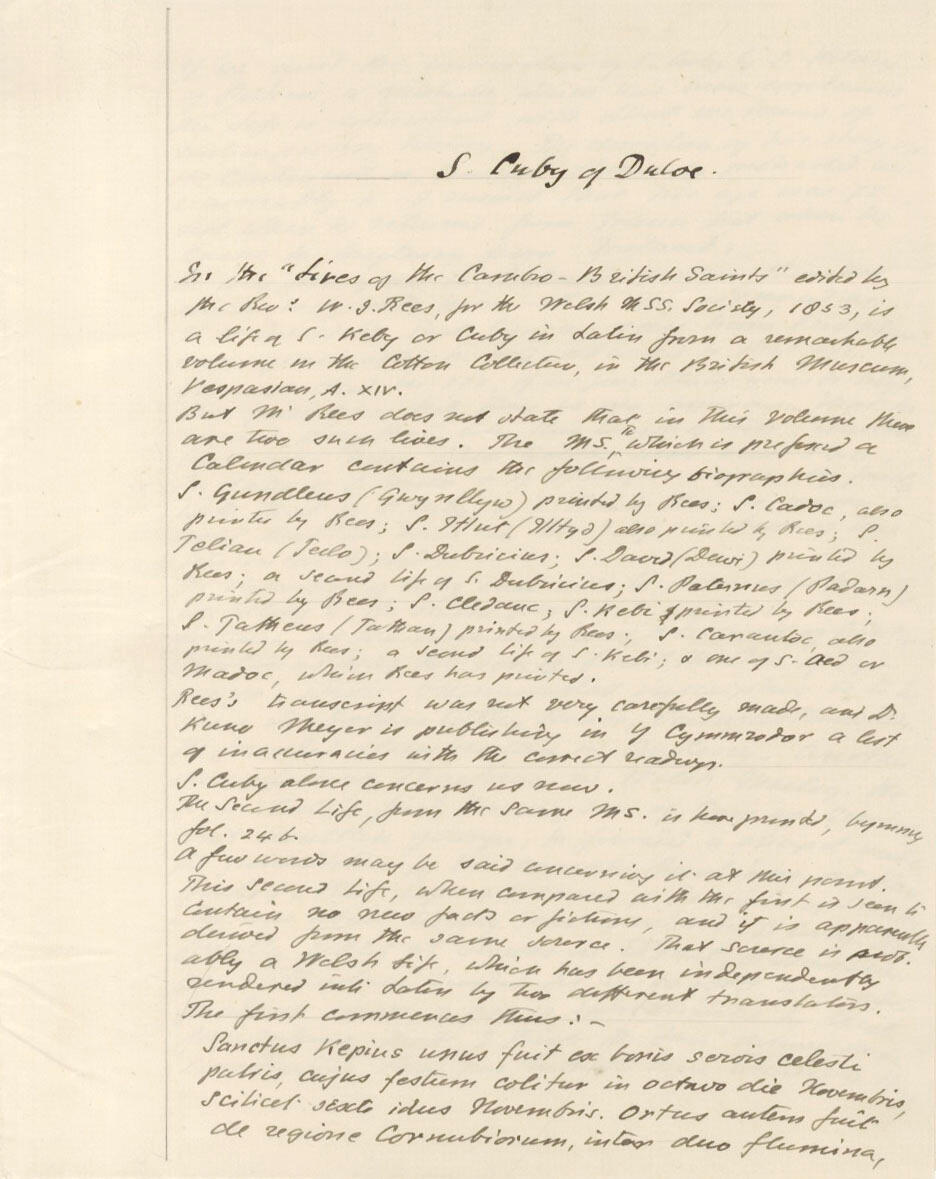 S. Cuby of Duloe.
In the "Lives of the Cambro-British Saints" edited by
the Revd. W. J. Rees, for the Welsh MSS. Society, 1853, is
a life of S. Keby or Cuby in Latin from a remarkable
volume in the Cotton Collection, in the British Museum,
Vespasian, A. XIV.
But Mr Rees does not state that in this volume there
are two such lives. The MS. to which is prefixed a
Calendar contains the following biographies.
S. Gundleus (Gwynllyw) printed by Rees; S. Cadoc, also
printed by Rees; S. Iltut (Illtyd) also printed by Rees; S.
Teliau (Teilo); S. Dubricius; S. David (Dewi) printed by
Rees; a second life of S. Dubricius; S. Paternus (Padarn)
printed by Rees; S. Cledauc; S. Kebi printed by Rees;
S. Tatheus (Tathan) printed by Rees; S. Carantoc, also
printed by Rees; a second life of S. Kebi; & one of S. Aed or
Madoc, which Rees has printed.
Rees's transcript was not very carefully made, and Dr.
Kuno Meyer is publishing in Y Cymmrodor a list
of inaccuracies with the correct readings.
S. Cuby alone concerns us now.
The Second Life, from the same MS. is here printed,
fol. 246.
A few words may be said concerning it at this point.
This Second Life, when compared with the first is seen to
contain no new facts or fictions, and it is apparently
derived from the same source. That source is prob-
ably a Welsh Life, which has been independently
rendered into Latin by two different translators.
The first commences thus:-
Sanctus Kepius unus fuit ex bonis servis celesti
patris, cujus festum colitur in octavo die Novembris,
scilicet sexto idus Novembris. Ortus autem fuit
de regione Cornubiorum, inter duo flumina,